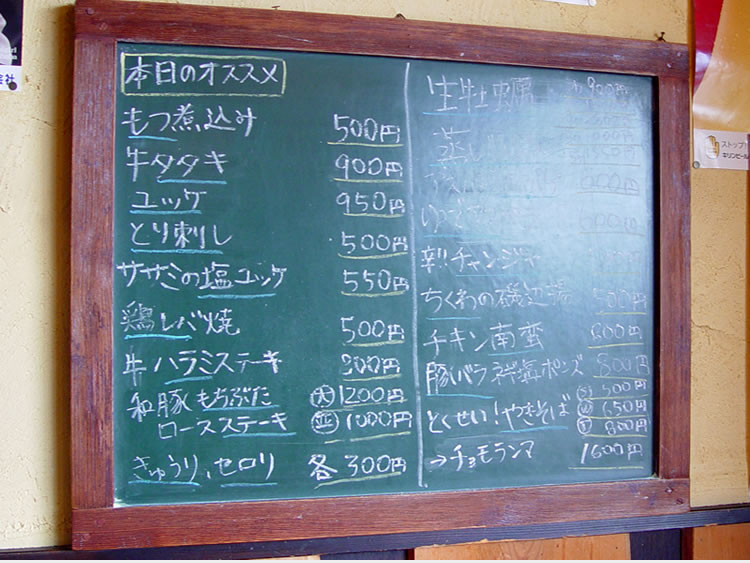 本日のオススメ
もつ煮込み 500円
牛タタキ 900円
ユッケ 950円
とり刺し 500円
ササミの塩ユッケ 550円
鶏レバ焼 500円
牛ハラミステーキ 800円
和豚もちぶた 大 1200円
ロースステーキ 並 1000円
きゅうり、セロリ 各300円
生牡蠣 900円
蒸し
チャンジャ
ちくわの磯辺揚 500円
チキン南蛮 800円
豚バラ 塩ポンズ 800円
500円
とくせい!やきそば 650円
800円
→チョモランマ 1600円
会社
ストップ!
キリンビール